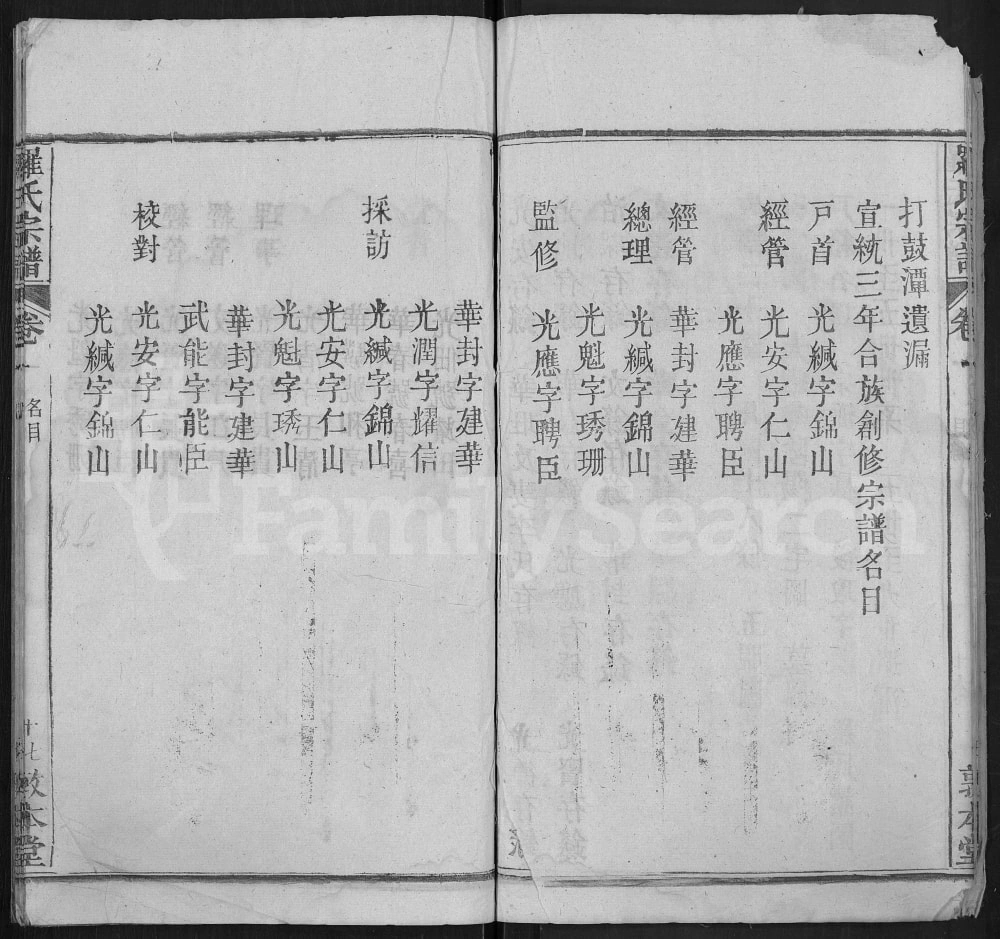 打鼓潭遺漏
宣統三年合族創修宗譜名目
戸首 光緘字錦山
經管 光安字仁山
光應字聘臣
經管 華封字建華
總理 光緘字錦山
光魁字琇珊
監修 光應字聘臣
華封字建華
光潤字耀信
採訪 光緘字錦山
光安字仁山
光魁字琇山
華封字建華
武能字能臣
校對 光安字仁山
光緘字錦山
羅氏宗譜 卷一 名目 十七 敦本堂
FamilySearch